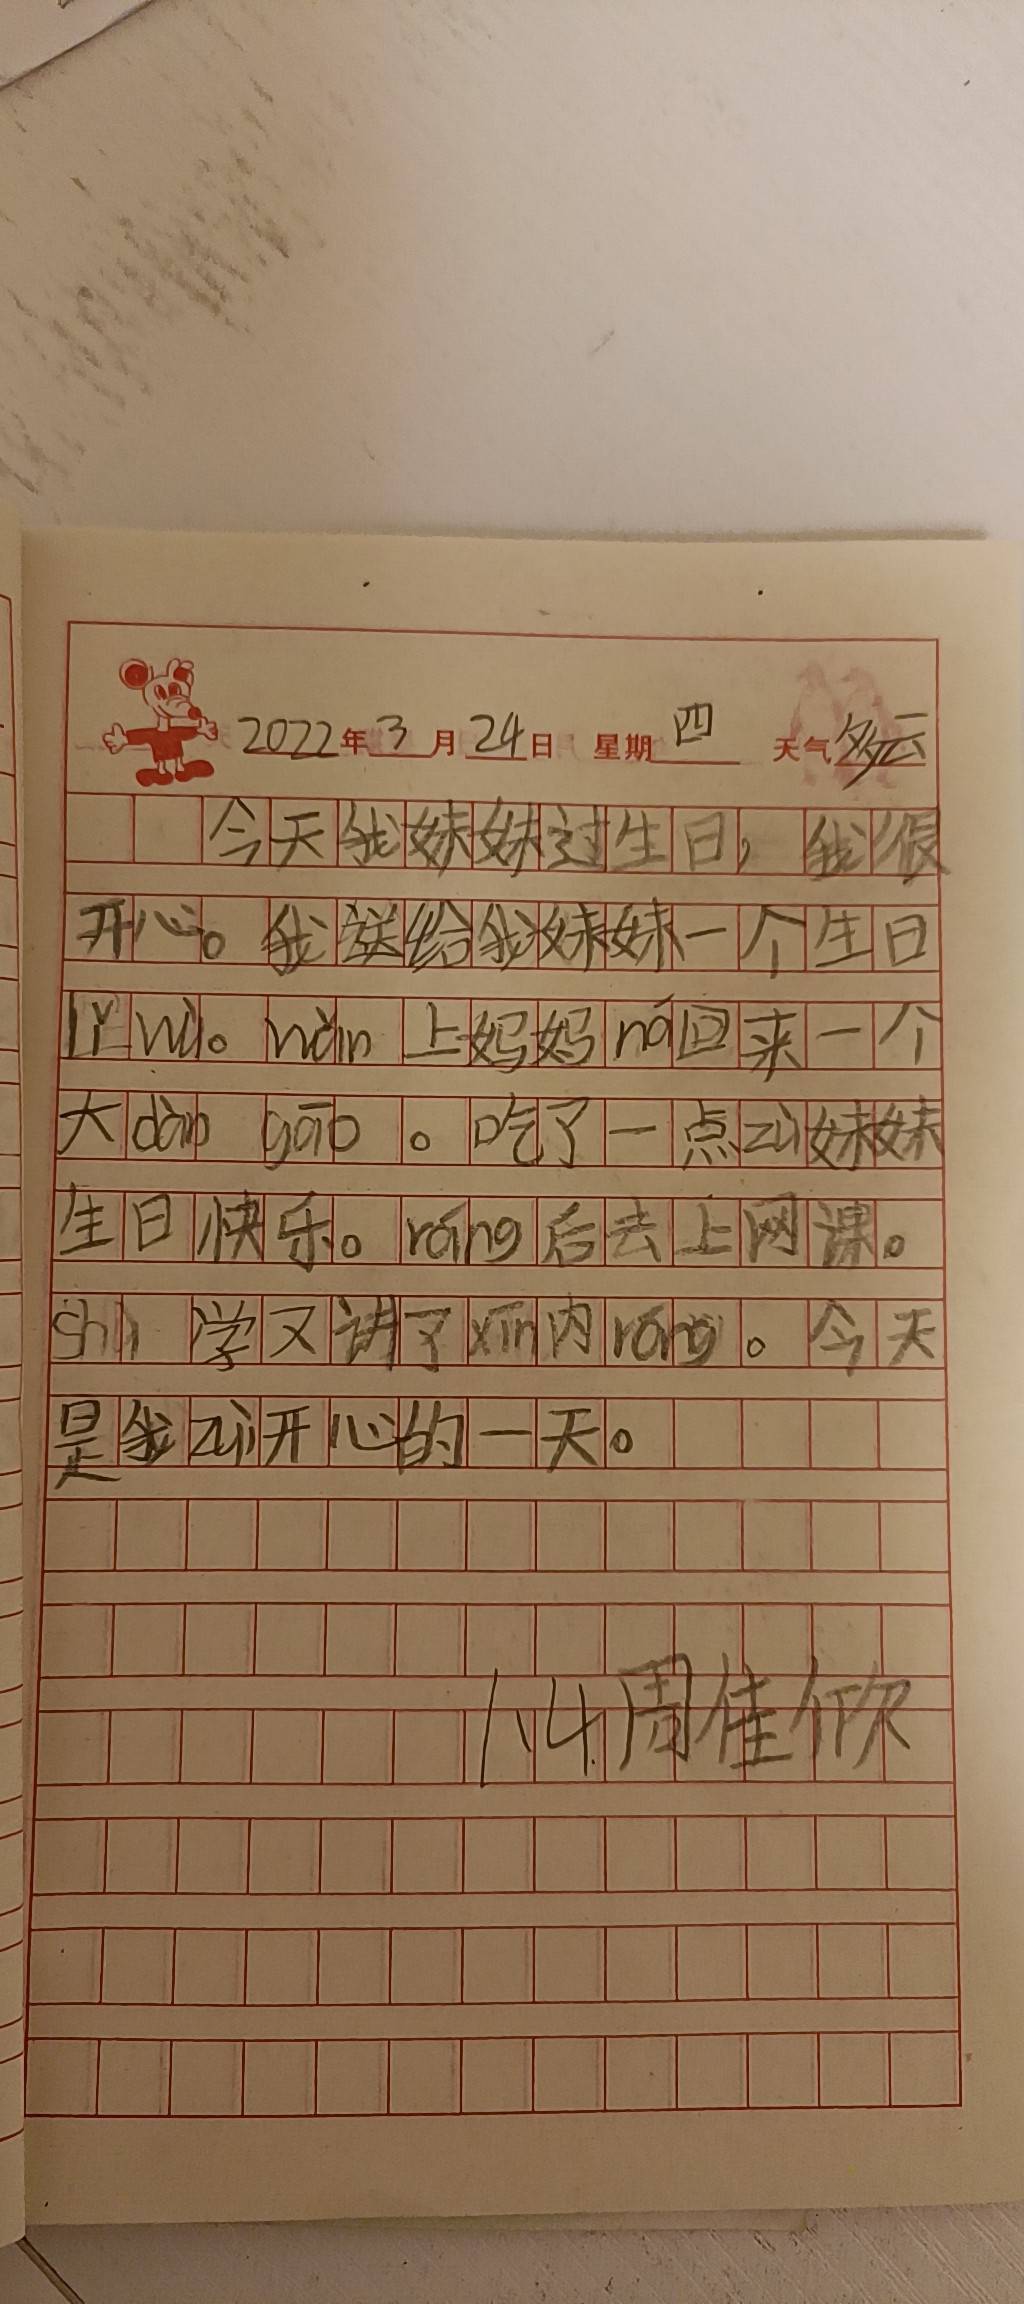 2022年3月24日 星期四 天气多云
今天我妹妹过生日，我很
开心。我送给我妹妹一个生日
lǐ wù。wǎn上妈妈ná回来一个
大dàn gāo。吃了一点zù妹妹
生日快乐。ráng后去上网课。
shù学又讲了xīn内róng。今天
是我zuì开心的一天。
1.4.周佳欣